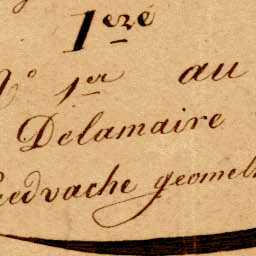 1ere
N° 1er au
Delamaire
Piedvache geomet